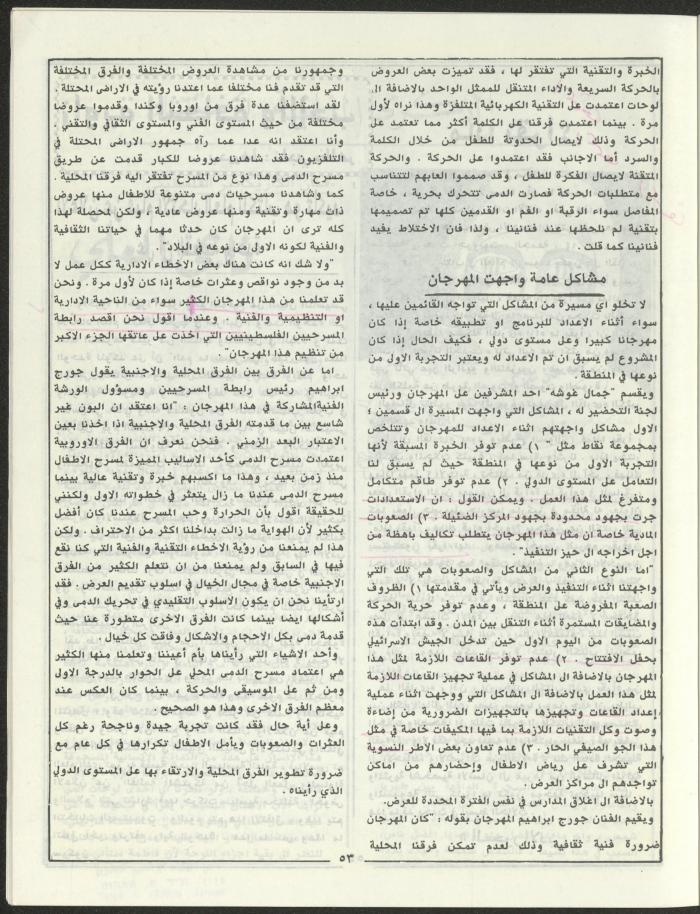 الخبرة والتقنية التي تفتقر لها ، فقد تميزت بعض العروض
بالحركة السريعة والاداء المتنقل للممثل الواحد بالاضافة الى
لوحات اعتمدت على التقنية الكهربائية المتلفزة وهذا نراه لأول
مرة . بينما اعتمدت فرقنا على الكلمة أكثر مما تعتمد على
الحركة وذلك لايصال الحدوتة للطفل من خلال الكلمة
والسرد أما الاجانب فقد اعتمدوا على الحركة . والحركة
المتقنة لايصال الفكرة للطفل ، وقد صمموا العابهم لتتناسب
مع متطلبات الحركة فصارت الدمى تتحرك بحرية ، خاصة
المفاصل سواء الرقبة او الفم او القدمين كلها تم تصميمها
بتقنية لم نلحظها عند فنانينا ، ولذا فان الاختلاط يفيد
فنانينا كما قلت .
مشاكل عامة واجهت المهرجان
لا تخلو اي مسيرة من المشاكل التي تواجه القائمين عليها ،
سواء أثناء الاعداد للبرنامج او تطبيقه خاصة إذا كان
مهرجانا كبيرا وعلى مستوى دولي ، فكيف الحال إذا كان
المشروع لم يسبق ان تم الاعداد له ويعتبر التجربة الاولى من
نوعها في المنطقة .
ويقسم "جمال غوشه" احد المشرفين على المهرجان ورئيس
لجنة التحضير له ، المشاكل التي واجهت المسيرة الى قسمين ؛
الاول مشاكل واجهتهم اثناء الاعداد للمهرجان وتتلخص
بمجموعة نقاط مثل " ١) عدم توفر الخبرة المسبقة لأنها
التجربة الاولى من نوعها في المنطقة حيث لم يسبق لنا
التعامل على المستوى الدولي . ٢) عدم توفر طاقم متكامل
ومتفرغ لمثل هذا العمل . ويمكن القول : ان الاستعدادات
جرت بجهود محدودة بجهود المركز الضئيلة . ٣) الصعوبات
المادية خاصة ان مثل هذا المهرجان يتطلب تكاليف باهظة من
اجل اخراجه الى حيز التنفيذ" .
"اما النوع الثاني من المشاكل والصعوبات هي تلك التي
واجهتنا اثناء التنفيذ والعرض ويأتي في مقدمتها ١) الظروف
الصعبة المفروضة على المنطقة ، وعدم توفر حرية الحركة
والمضايقات المستمرة أثناء التنقل بين المدن . وقد ابتدأت هذه
الصعوبات من اليوم الاول حين تدخل الجيش الاسرائيلي
بحفل الافتتاح . ٢) عدم توفر القاعات اللازمة لمثل هذا
المهرجان بالاضافة الى المشاكل في عملية تجهيز القاعات اللازمة
لمثل هذا العمل بالاضافة الى المشاكل التي ووجهت اثناء عملية
إعداد القاعات وتجهيزها بالتجهيزات الضرورية من إضاءة
وصوت وكل التقنيات اللازمة بما فيها المكيفات خاصة في مثل
هذا الجو الصيفي الحار . ٣) عدم تعاون بعض الاطر النسوية
التي تشرف على رياض الاطفال وإحضارهم من اماكن
تواجدهم الى مراكز العرض .
بالاضافة الى اغلاق المدارس في نفس الفترة المحددة للعرض.
ويقيم الفنان جورج ابراهيم المهرجان بقوله : "كان المهرجان
ضرورة فنية ثقافية وذلك لعدم تمكن فرقنا المحلية
وجمهورنا من مشاهدة العروض المختلفة والفرق المختلفة
التي قد تقدم فنا مختلفا عما اعتدنا رؤيته في الاراضي المحتلة .
لقد استضفنا عدة فرق من اوروبا وكندا وقدموا عروضا
مختلفة من حيث المستوى الفني والمستوى الثقافي والتقني .
وأنا اعتقد انه عدا عما رآه جمهور الاراضي المحتلة في
التلفزيون فقد شاهدنا عروضا للكبار قدمت عن طريق
مسرح الدمى وهذا نوع من المسرح تفتقر اليه فرقنا المحلية .
كما وشاهدنا مسرحيات دمى متنوعة للاطفال منها عروض
ذات مهارة وتقنية ومنها عروض عادية ، ولكن لمحصلة لهذا
كله ترى ان المهرجان كان حدثا مهما في حياتنا الثقافية
والفنية لكونه الاول من نوعه في البلاد" .
"ولا شك انه كانت هناك بعض الاخطاء الادارية ككل عمل لا
بد من وجود نواقص وعثرات خاصة إذا كان لأول مرة . ونحن
قد تعلمنا من هذا المهرجان الكثير سواء من الناحية الادارية
او التنظيمية والفنية . وعندما اقول نحن اقصد رابطة
المسرحيين الفلسطينيين التي اخذت على عاتقها الجزء الاكبر
من تنظيم هذا المهرجان" .
اما عن الفرق بين الفرق المحلية والاجنبية يقول جورج
ابراهيم رئيس رابطة المسرحيين ومسؤول الورشة
الفنيةالمشاركة في هذا المهرجان : "انا اعتقد ان البون غير
شاسع بين ما قدمته الفرق المحلية والاجنبية اذا اخذنا بعين
الاعتبار البعد الزمني . فنحن نعرف ان الفرق الاوروبية
اعتمدت مسرح الدمى كأحد الاساليب المميزة لمسرح الاطفال
منذ زمن بعيد ، وهذا ما اكسبهم خبرة وتقنية عالية بينما
مسرح الدمى عندنا ما زال يتعثر في خطواته الاولى ولكنني
للحقيقة اقول بأن الحرارة وحب المسرح عندنا كان أفضل
بكثير لأن الهواية ما زالت بداخلنا اكثر من الاحتراف . ولكن
هذا لم يمنعنا من رؤية الاخطاء التقنية والفنية التي كنا نقع
فيها في السابق ولم يمنعنا من ان نتعلم الكثير من الفرق
الاجنبية خاصة في مجال الخيال في اسلوب تقديم العرض . فقد
ارتأينا نحن ان يكون الاسلوب التقليدي في تحريك الدمى وفي
أشكالها ايضا بينما كانت الفرق الاخرى متطورة عنا حيث
قدمة دمى بكل الاحجام والاشكال وفاقت كل خيال .
وأحد الاشياء التي رأيناها بأم أعيننا وتعلمنا منها الكثير
هي اعتماد مسرح الدمى المحلي على الحوار بالدرجة الاولى
ومن ثم على الموسيقى والحركة ، بينما كان العكس عند
معظم الفرق الاخرى وهذا هو الصحيح .
وعلى أية حال فقد كانت تجربة جيدة وناجحة رغم كل
العثرات والصعوبات ويأمل الاطفال تكرارها في كل عام مع
ضرورة تطوير الفرق المحلية والارتقاء بها على المستوى الدولي
الذي رأيناه .
٥٣